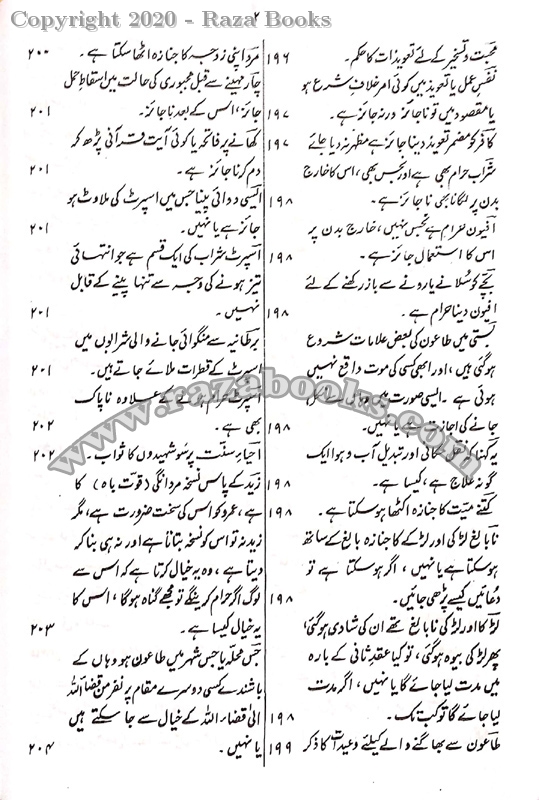 Copyright 2020 - Raza Books
۲
محبت و تسخیر کے لئے تعویذات کا حکم۔ ۱۹۶
نفس عمل یا تعویذ میں کوئی امر خلاف شرع ہو
یا مقصود میں تو ناجائز ورنہ جائز ہے۔ ۱۹۷
کافر کو مضمر تعویذ دینا جائز ہے مظہر نہ دیا جائے ۱۹۷
شراب حرام بھی ہے اور نجس بھی، اس کا خارج
بدن پر لگانا بھی ناجائز ہے۔ ۱۹۸
افیون حرام ہے نجس نہیں، خارج بدن پر
اس کا استعمال جائز ہے۔ ۱۹۸
بچے کو سلانے یا رونے سے باز رکھنے کے لئے
افیون دینا حرام ہے۔ ۱۹۸
بستی میں طاعون کی بعض علامات شروع
ہو گئی ہیں، اور ابھی کسی کی موت واقع نہیں
ہوئی ہے۔ ایسی صورت میں وہاں سے نکل
جانے کی اجازت ہے یا نہیں۔ ۱۹۸
یہ کہنا کہ نقل مکانی اور تبدیل آب و ہوا ایک
گونہ علاج ہے، کیسا ہے۔ ۱۹۸
کتنے میت کا جنازہ اکٹھا ہو سکتا ہے۔ ۱۹۸
نابالغ لڑکی اور لڑکے کا جنازہ بالغ کے ساتھ
ہو سکتا ہے یا نہیں، اگر ہو سکتا ہے تو
دعائیں کیسے پڑھی جائیں۔ ۱۹۸
لڑکا اور لڑکی نابالغ تھے ان کی شادی ہو گئی،
پھر لڑکی بیوہ ہو گئی، تو کیا عقد ثانی کے بارہ
میں مدت لیا جائے گا یا نہیں، اگر مدت
لیا جائے گا تو کب تک۔ ۱۹۸
طاعون سے بھاگنے والے کیلئے وعیدات کا ذکر ۱۹۹
مرد اپنی زوجہ کا جنازہ اٹھا سکتا ہے۔ ۲۰۰
چار مہینے سے قبل مجبوری کی حالت میں اسقاط حمل
جائز، اس کے بعد ناجائز۔ ۲۰۱
کھانے پر فاتحہ یا کوئی آیت قرآنی پڑھ کر
دم کرنا جائز ہے۔ ۲۰۱
ایسی دوائی پینا جس میں اسپرٹ کی ملاوٹ ہو
جائز ہے یا نہیں۔ ۲۰۱
اسپرٹ شراب کی ایک قسم ہے جو انتہائی
تیز ہونے کی وجہ سے تنہا پینے کے قابل
نہیں۔ ۲۰۱
برطانیہ سے منگوائی جانے والی شرابوں میں
اسپرٹ کے قطرات ملائے جاتے ہیں۔ ۲۰۱
اسپرٹ حرام ہونے کے علاوہ ناپاک
بھی ہے۔ ۲۰۲
احیاء سنت پر سو شہیدوں کا ثواب۔ ۲۰۲
زید کے پاس نسخہ مردانگی (قوت باہ) کا
ہے، عمرو کو اس کی سخت ضرورت ہے، مگر
زید نہ تو اس کو نسخہ بتاتا ہے اور نہ ہی بنا کر
دیتا ہے، وہ یہ خیال کرتا ہے کہ اس سے
لوگ اگر حرام کریں گے تو مجھے گناہ ہو گا، اس کا
یہ خیال کیسا ہے۔ ۲۰۳
جس محلہ یا جس شہر میں طاعون ہو وہاں کے
باشندے کسی دوسرے مقام پر نفر من قضاء اللہ
الی قضاء اللہ کے خیال سے جا سکتے ہیں
یا نہیں۔ ۲۰۴
www.razabooks.com